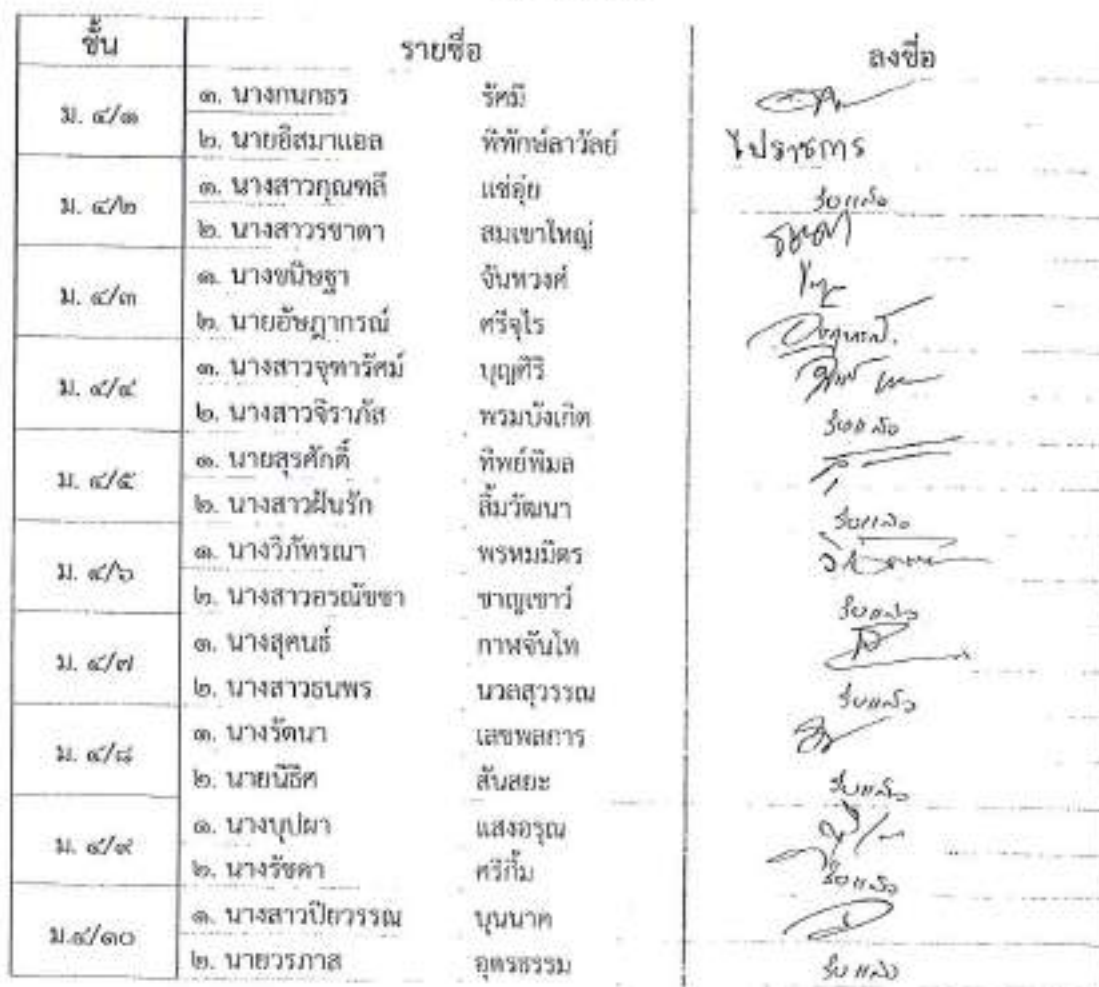 ชั้น รายชื่อ ลงชื่อ
ม. ๔/๑
๑. นางกนกธร รัศมี
๒. นายอิสมาแอล พิทักษ์ลาวัลย์ ไปราชการ
ม. ๔/๒
๑. นางสาวกุณฑลี แซ่อุ่ย รับแล้ว
๒. นางสาวรชาดา สมเขาใหญ่
ม. ๔/๓
๑. นางขนิษฐา จันทวงศ์
๒. นายอัษฎากรณ์ ศรีจุไร
ม. ๔/๔
๑. นางสาวจุฑารัศม์ บุญศิริ
๒. นางสาวจิราภัส พรมบังเกิด รับแล้ว
ม. ๔/๕
๑. นายสุรศักดิ์ ทิพย์พิมล
๒. นางสาวฝันรัก ลิ้มวัฒนา รับแล้ว
ม. ๔/๖
๑. นางวิภัทรณา พรหมมิตร
๒. นางสาวอรณัชชา ชาญเชาว์ รับแล้ว
ม. ๔/๗
๑. นางสุคนธ์ กาฬจันโท
๒. นางสาวธนพร นวลสุวรรณ รับแล้ว
ม. ๔/๘
๑. นางรัตนา เลขพลการ
๒. นายนิธิศ สันสยะ รับแล้ว
ม. ๔/๙
๑. นางบุปผา แสงอรุณ
๒. นางรัชดา ศรีกิ้ม รับแล้ว
ม.๔/๑๐
๑. นางสาวปิยวรรณ บุนนาค
๒. นายวรภาส อุตรธรรม รับแล้ว